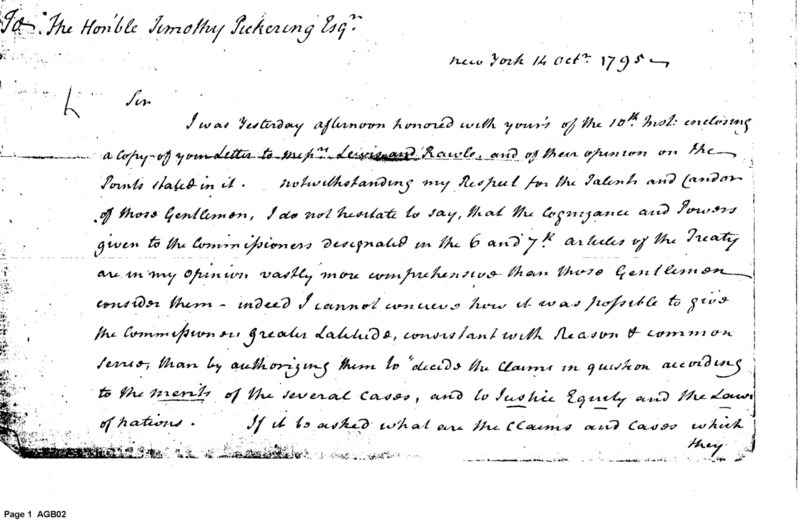 To: The Hon'ble Timothy Pickering Esqr.
New York 14 Octr. 1795
Sir
I was Yesterday afternoon honored with your's of the 10th. Inst: enclosing
a copy of your Letter to Messrs. Lewis and Rawle, and of their opinion on the
Points stated in it. notwithstanding my Respect for the Talents and Candor
of those Gentlemen, I do not hesitate to say, that the Cognizance and Powers
given to the Commissioners designated in the 6 and 7th articles of the Treaty
are in my opinion vastly more comprehensive than those Gentlemen
consider them - indeed I cannot concieve how it was possible to give
the Commissioners greater Latitude, consistant with Reason & common
sense, than by authorizing them to "decide the Claims in question according
to the merits of the several Cases, and to Justice Equity and the Laws
of nations. If it be asked what are the Claims and Cases which
they
Page 1 AGB02